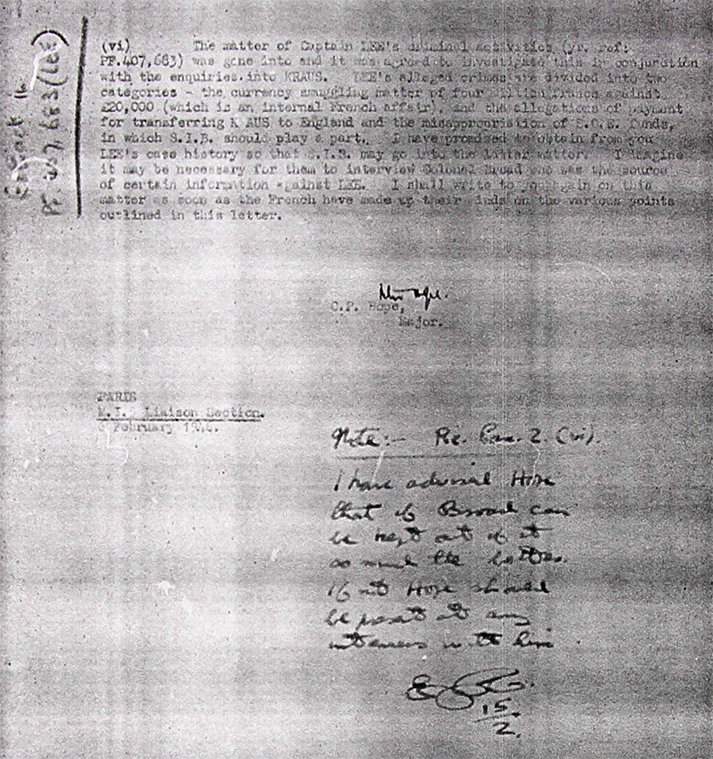 Extract 16
PF. 407,683 (LEE)
(vi) The matter of Captain LEE's criminal activities (yr. ref:
PF.407,683) was gone into and it was agreed to investigate this in conjunction
with the enquiries into KRAUS. LEE's alleged crimes are divided into two
categories - the currency smuggling matter of four million francs against
£20,000 (which is an internal French affair), and the allegations of payment
for transferring K AUS to England and the misappropriation of S.O.E. funds,
in which S.I.B. should play a part. I have promised to obtain from you
LEE's case history so that S.I.B. may go into the latter matter. I imagine
it may be necessary for them to interview Colonel Broad who was the source
of certain information against LEE. I shall write to you again on this
matter as soon as the French have made up their minds on the various points
outlined in this letter.
C.P. Hope,
Major.
PARIS
M.I. Liaison Section.
February 1946.
Note:- Re. Para. 2. (vi).
I have advised Hope
that if Broad can
be kept out of it
so much the better.
If not Hope should
be present at any
interview with him
15/2.